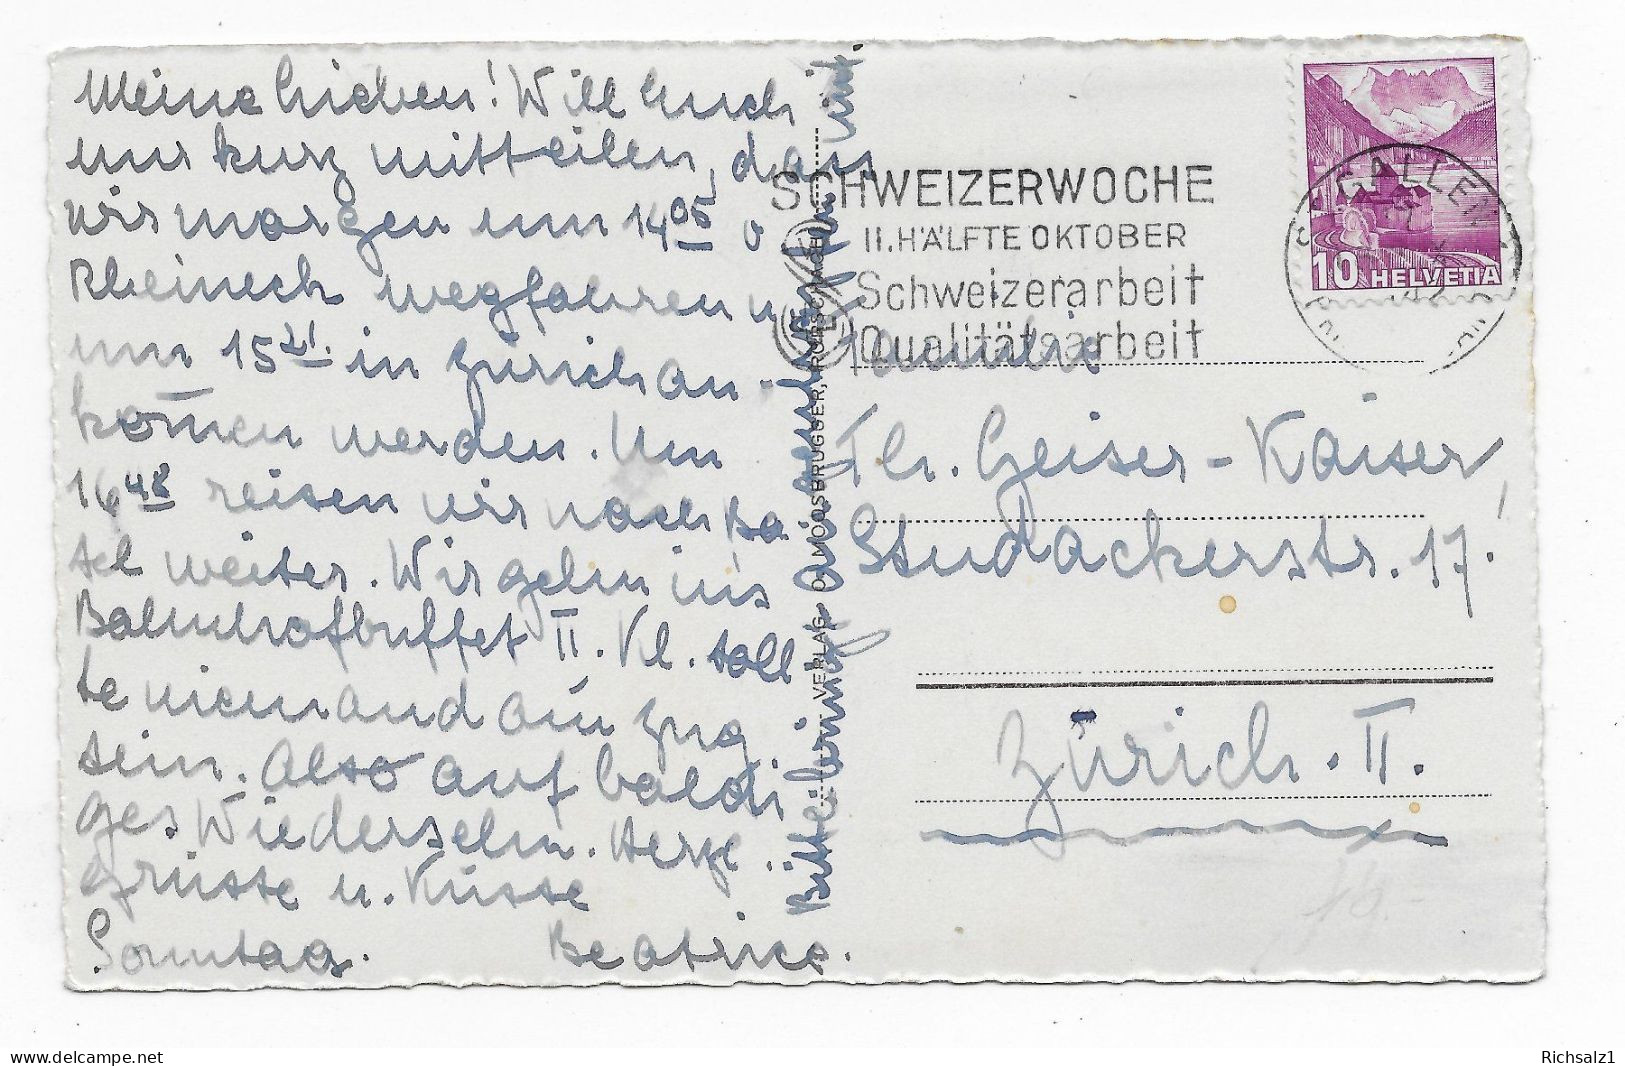 Meine Lieben! Will Euch
nur kurz mitteilen, dass
wir morgen um 14 05 v
Rheineck wegfahren u
um 15 21. in Zürich an-
kom̄en werden. Um
16 48 reisen wir nach Ba
sel weiter. Wir gehn in's
Bahnhofbuffet II. Kl. soll
te niemand am Zug
sein. Also auf baldi
ges Wiedersehn. Herzl.
Grüsse u. Küsse
Sonntag. Beatrice.
Bitte
VERLAG O. MOOSBRUGGER, RORSCHACH
SCHWEIZERWOCHE
II. HÄLFTE OKTOBER
Schweizerarbeit
Qualitätsarbeit
ST. GALLEN
10 HELVETIA
Familie
Th. Geiser-Kaiser,
Studackerstr. 17!
Zürich. II.
Richsalz1